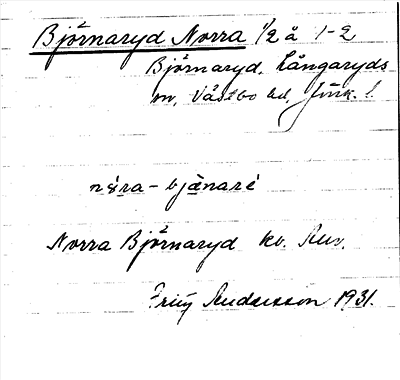 Björnaryd Norra 1/2 å 1-2
Björnaryd, Långaryds
sn, Västbo hd, Jönk. l.
nǫ́ra - bjǽnaré
Norra Björnaryd kv. Rev.
Andersson 1931.